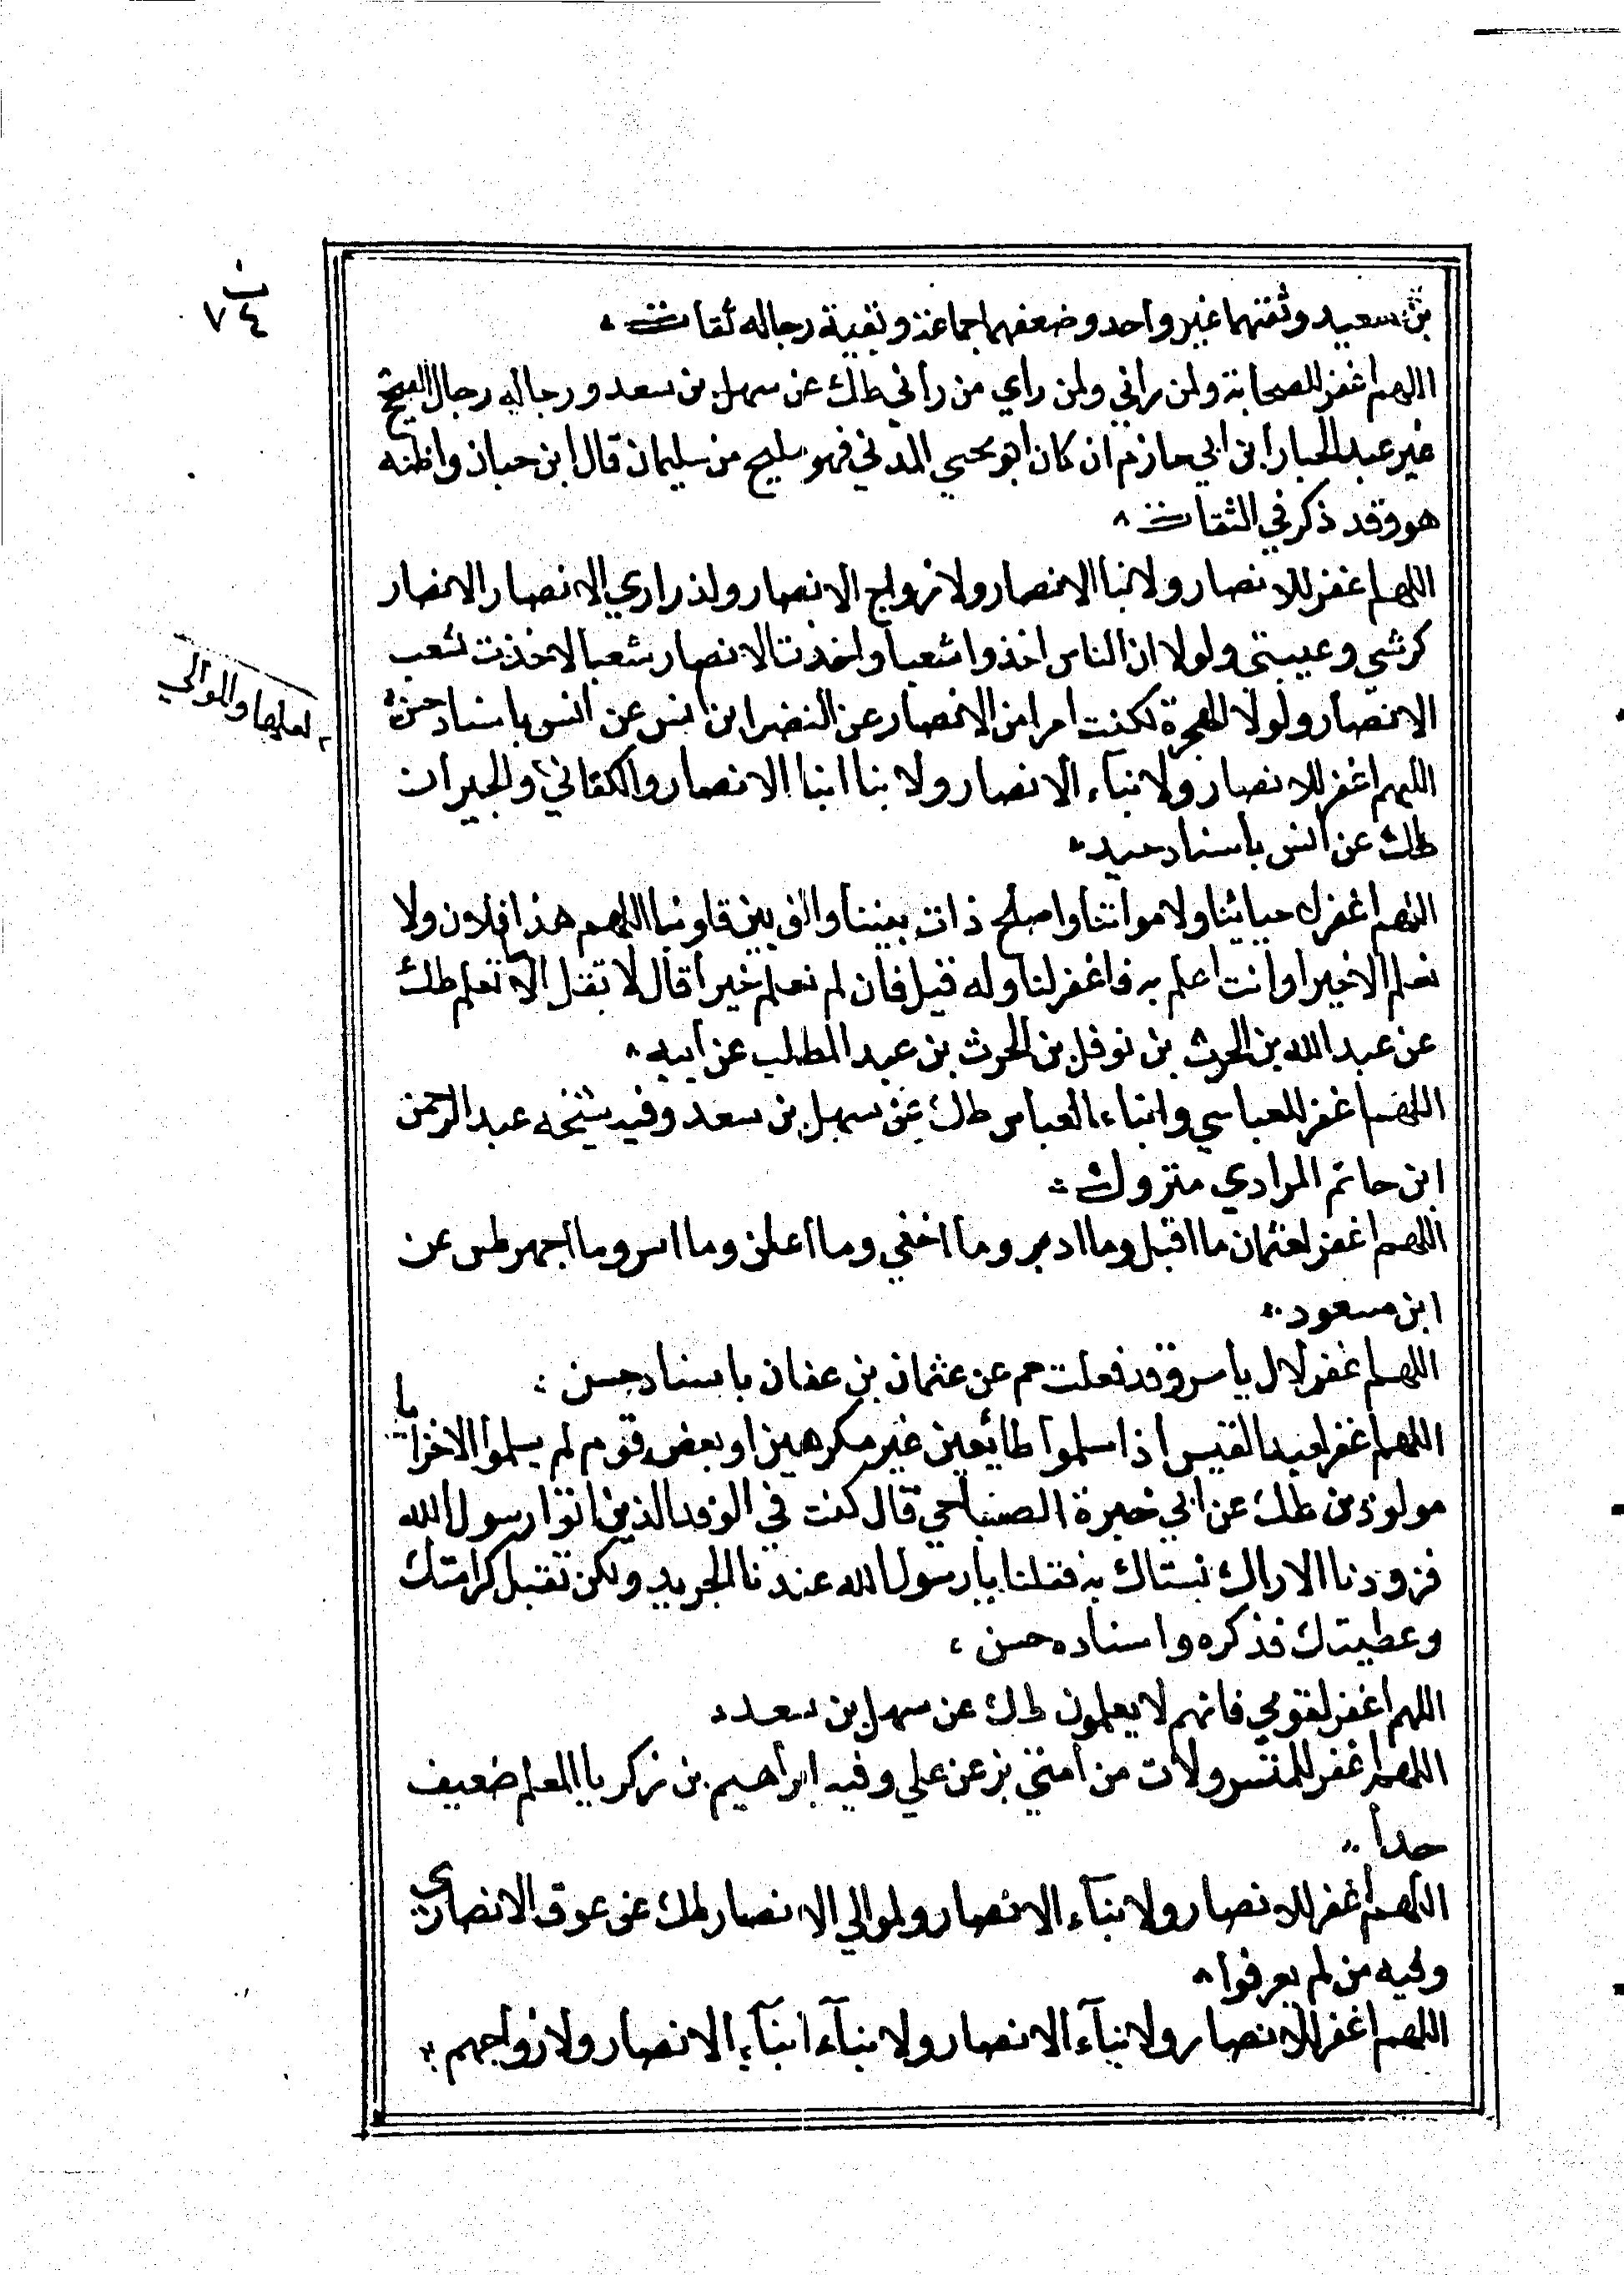 ن
٧٤
بن سعيد وثقهما غير واحد وضعفهما جماعة وبقية رجاله ثقات
اللهم اغفر للصحابة ولمن راني ولمن راي من راني طك عن سهل بن سعد ورجاله رجال الصحيح
غير عبد الجبار ابن ابي حازم ان كان ابو يحيي المدني فهو سليح من سليمان قال ابن حبان واظنه
هو وقد ذكر في الثقات
اللهم اغفر للانصار ولابنا الانصار ولازواج الانصار ولذراري الانصار الانصار
كرشي وعيبتي ولولا ان الناس اخذوا شعبا واخذت الانصار شعبا لاخذت شعب
الانصار ولولا الهجرة لكنت امرا من الانصار عن النضر ابن انس عن انس باسناد حسن
اللهم اغفر للانصار ولابناء الانصار ولابنا ابنا الانصار والكفاني والجيران
لعلها والموالي
طك عن انس باسناد جيد
اللهم اغفر لاحيائنا ولامواتنا واصلح ذات بيننا والف بين قلوبنا اللهم هذا فلان ولا
نعلم الا خيرا وانت اعلم به فاغفر لنا وله قيل فان لم نعلم خيرا قال لا تقل الا تعلم طك
عن عبد الله بن الحرث بن نوفل بن الحرث بن عبد المطلب عن ابيه
اللهم اغفر للعباس وابناء العباس طك عن سهل بن سعد وفيه شيخه عبد الرحمن
ابن حاتم المرادي متروك
اللهم اغفر لعثمان ما اقبل وما ادبر وما اخفي وما اعلن وما اسر وما اجهر طس عن
ابن مسعود
اللهم اغفر لال ياسر وقد فعلت حم عن عثمان بن عفان باسناد حسن
اللهم اغفر لعبد القيس اذ اسلموا طائعين غير مكرهين اوبعض قوم لم يسلموا الا خزايا
مولوذين طك عن ابي خيرة الصباحي قال كنت في الوفد الذين اتوا رسول الله
فزودنا الاراك نستاك به فقلنا يا رسول الله عندنا الجريد ولكن تقبل كرامتك
وعطيتك فذكره واسناده حسن
اللهم اغفر لقومي فانهم لا يعلمون طك عن سهل بن سعد
اللهم اغفر للمتسرولات من امتي بز عن علي وفيه ابراهيم بن زكريا المعلم ضعيف
جدا
اللهم اغفر للانصار ولابناء الانصار ولموالي الانصار طك عن عوف الانصاري
وفيه من لم يعرفوا
اللهم اغفر للانصار ولابناء الانصار ولابناء ابناء الانصار ولازواجهم